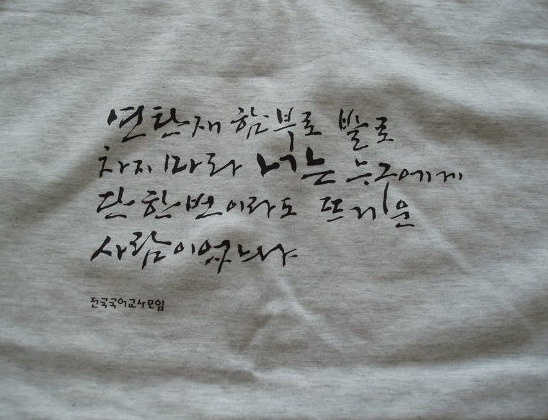 연탄재 함부로 발로
차지마라 너는 누구에게
단 한번이라도 뜨거운
사람이었느냐
전국국어교사모임